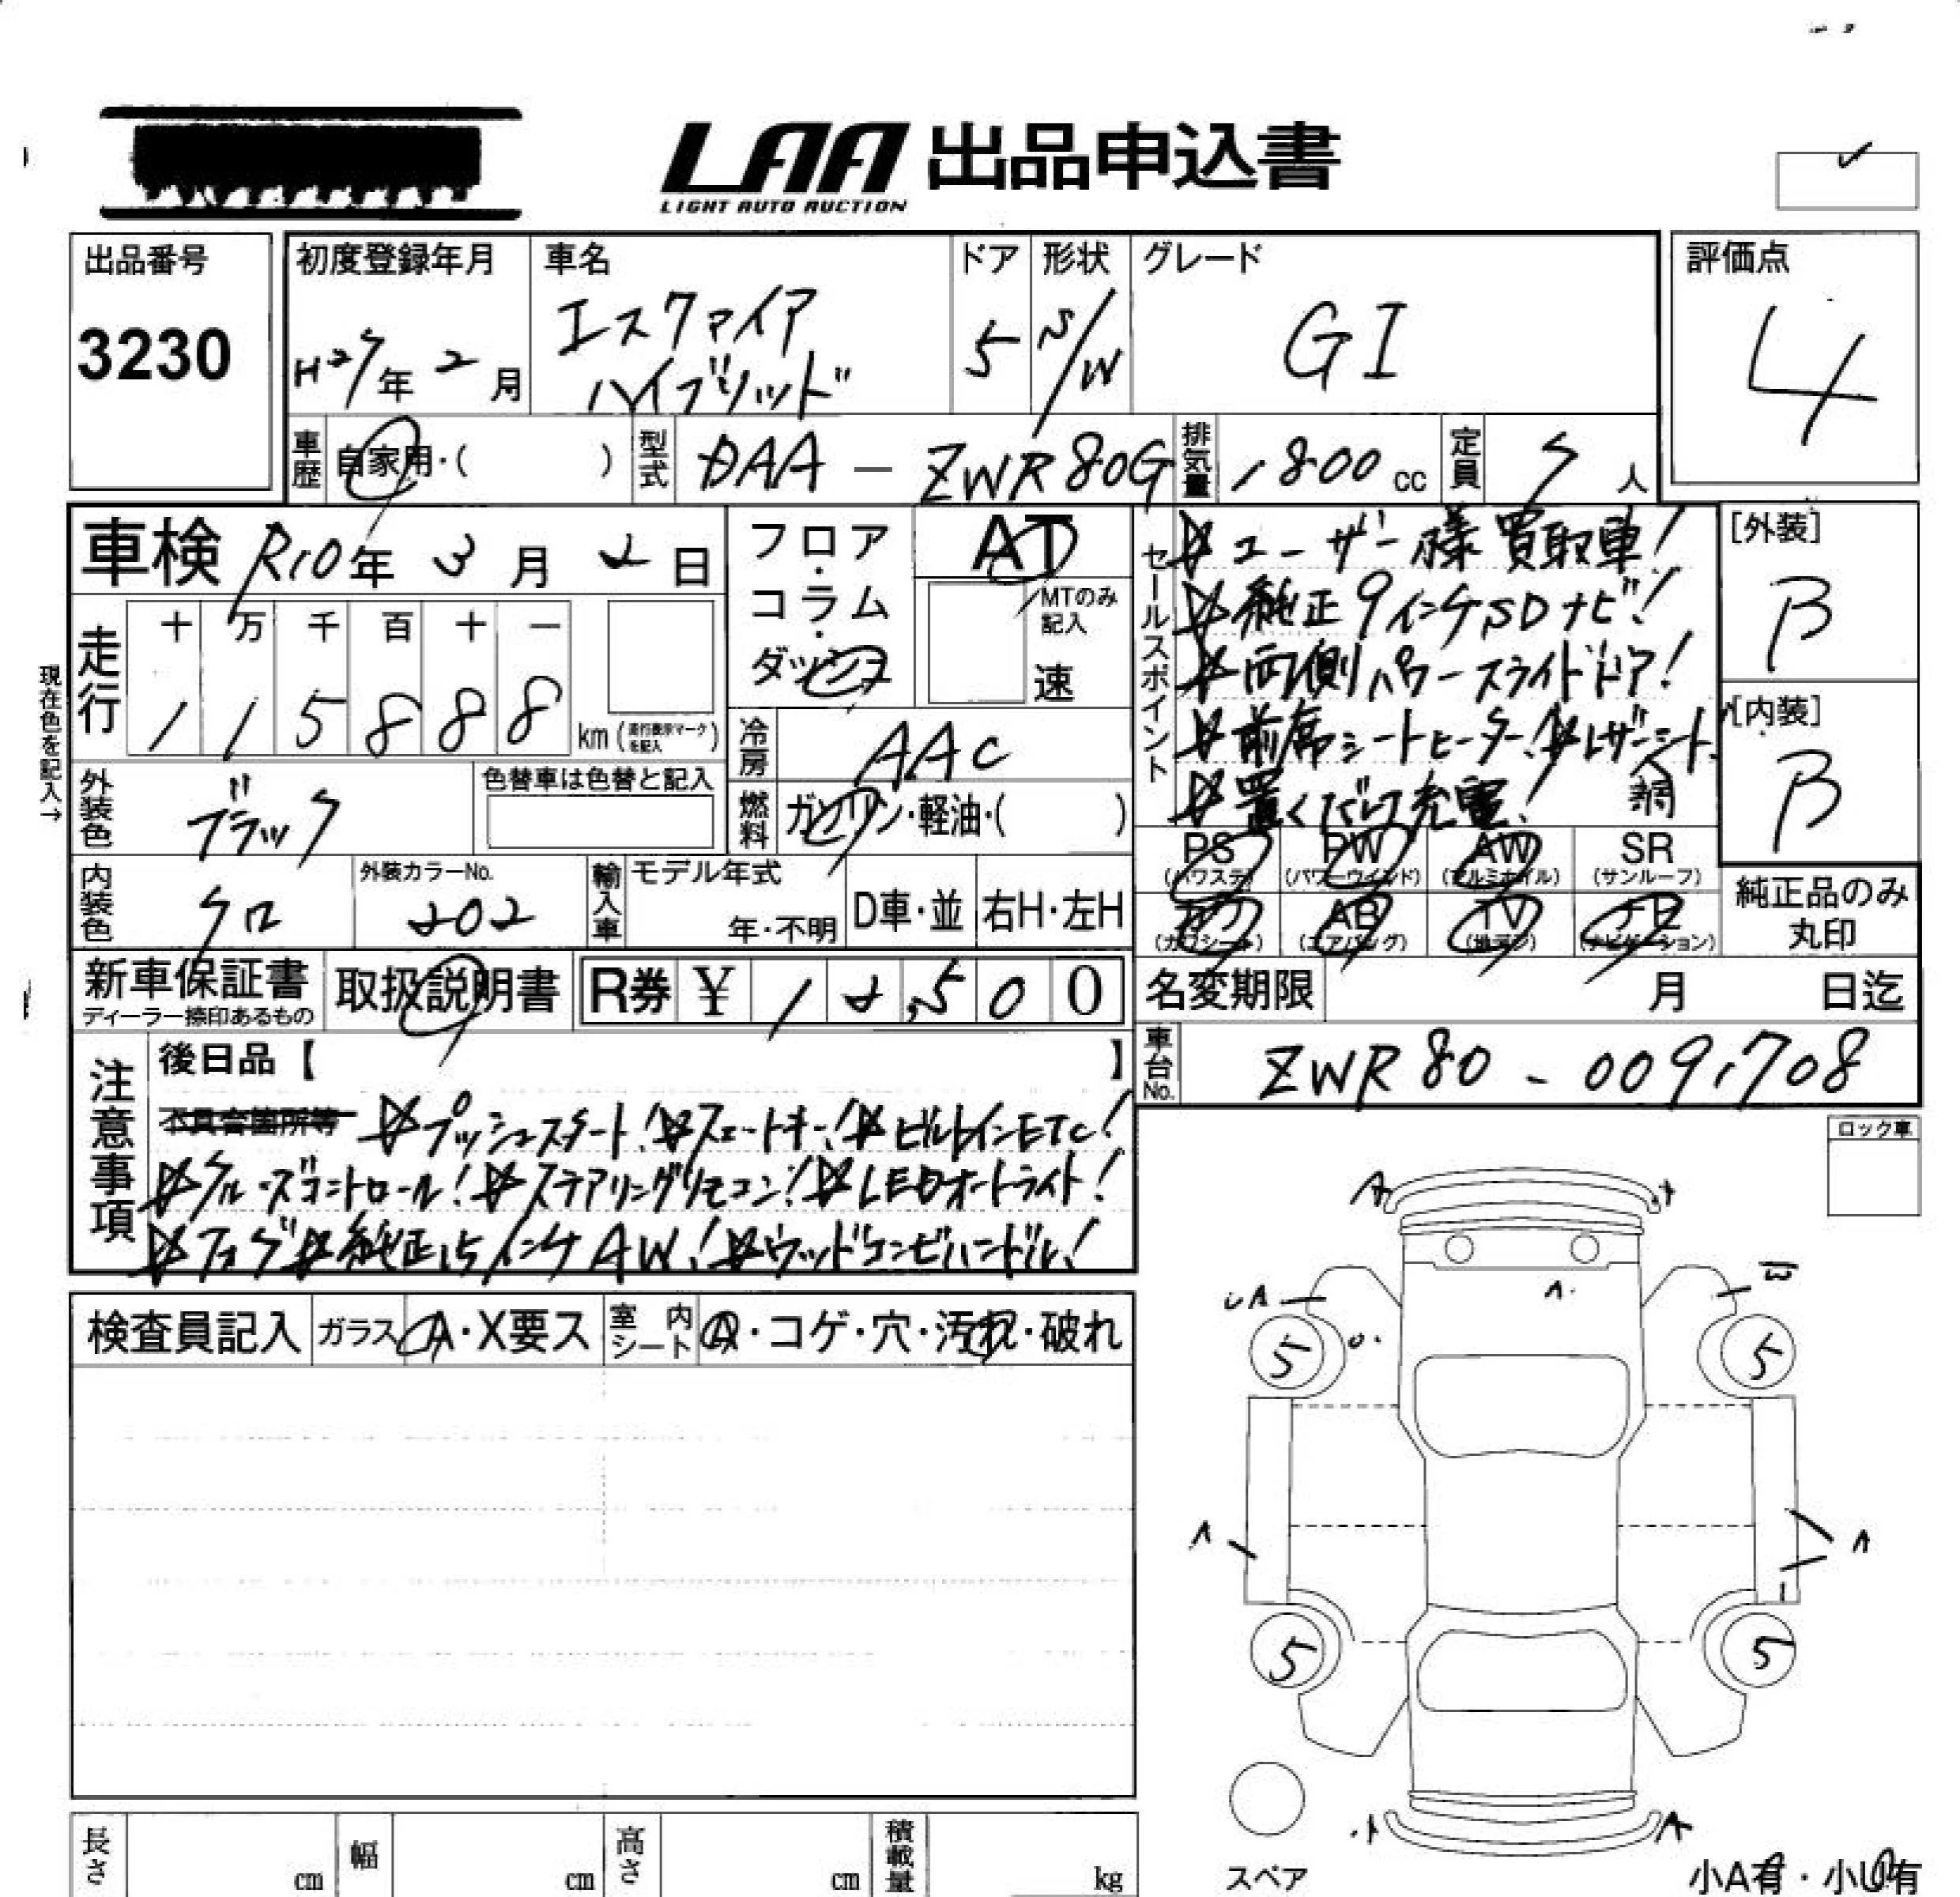 LAA 出品申込書
LIGHT AUTO AUCTION
出品番号
3230
初度登録年月
H27年2月
車名
エスクァイア
ハイブリッド
ドア
5
形状
S/W
グレード
GI
評価点
4
車歴
自家用・( )
型式
DAA - ZWR80G
排気量
1800 cc
定員
7人
車検 R10年3月2日
フロア・コラム・ダッシュ
AT
MTのみ記入
速
現在色を記入→
走行
十 万 千 百 十 一
1 1 5 8 8 8
km (走行表示マークを記入)
冷房
AAC
外装色
ブラック
色替車は色替と記入
燃料
ガソリン・軽油・( )
内装色
クロ
外装カラーNo.
202
輸入車
モデル年式
年・不明
D車・並
右H・左H
新車保証書
ディーラー捺印あるもの
取扱説明書
R券 ¥ 12,500
セールスポイント
☆ユーザー様買取車!
☆純正9インチSDナビ!
☆両側パワースライドドア!
☆前席シートヒーター!☆レザーシート
☆置くだけ充電!
[外装]
B
[内装]
B
PS (パワステ)
PW (パワーウインド)
AW (アルミホイル)
SR (サンルーフ)
カワ (カワシート)
AB (エアバッグ)
TV (地デジ)
ナビ (ナビゲーション)
純正品のみ
丸印
名変期限 月 日迄
車台No.
ZWR80-0091708
注意事項
後日品【 】
不具合箇所等 ☆プッシュスタート!☆スマートキー!☆ビルトインETC!
☆クルーズコントロール!☆ステアリングリモコン!☆LEDオートライト!
☆フォグ☆純正15インチAW!☆ウッドコンビハンドル!
ロック車
検査員記入
ガラス A・X要ス
室内シート Ⓐ・コゲ・穴・汚れ・破れ
A
UA
A
5
5
A
A
5
5
A
スペア
小A有・小U有
長さ cm
幅 cm
高さ cm
積載量 kg